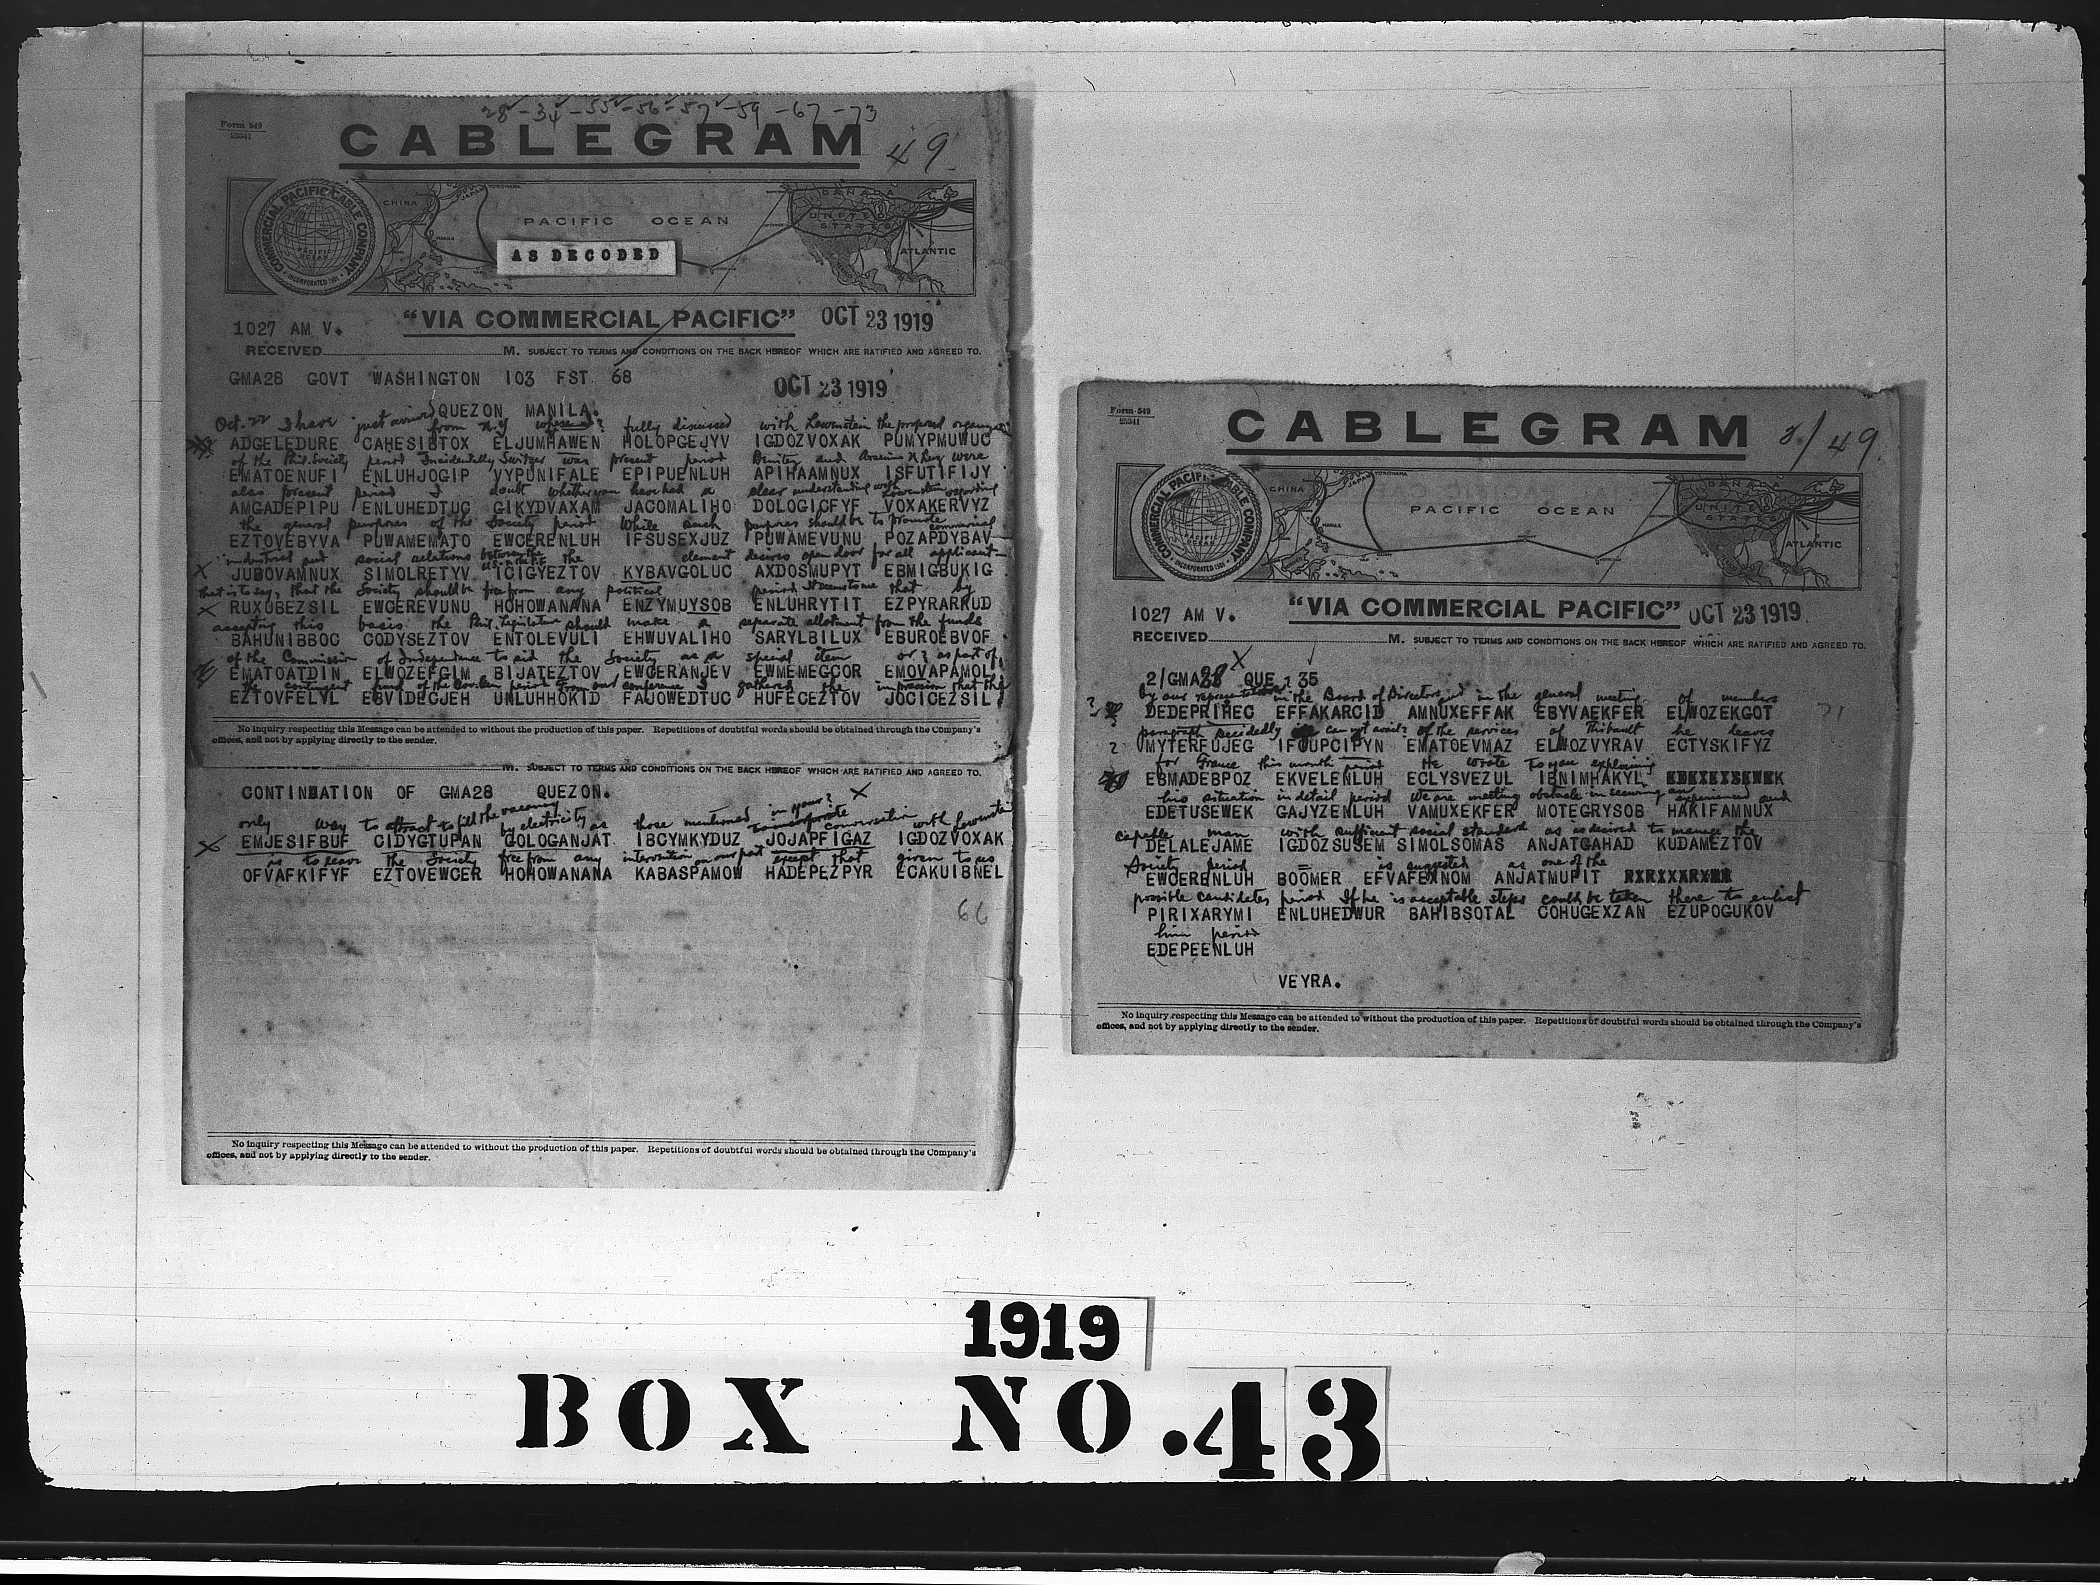 28 - 34 - 55 - 56 - 57 - 59 - 67 - 73
Form 549
25341
CABLEGRAM
49
COMMERCIAL PACIFIC CABLE COMPANY
INCORPORATED 1901
CHINA
JAPAN
YOKOHAMA
MANILA
PACIFIC OCEAN
CANADA
UNITED STATES
ATLANTIC
AS DECODED
1027 AM V.
"VIA COMMERCIAL PACIFIC"
OCT 23 1919
RECEIVED M. SUBJECT TO TERMS AND CONDITIONS ON THE BACK HEREOF WHICH ARE RATIFIED AND AGREED TO.
GMA28 GOVT WASHINGTON 103 FST 68
OCT 23 1919
QUEZON MANILA.
Oct. 22 I have just arrived from N.Y. fully discussed with Lowenstein the proposed
ADGELEDURE CAHESIBTOX ELJUMHAWEN HOLOPGEJYV IGDOZVOXAK PUMYPMUWUC
of the Phil. Society period Incidentally Switzer was present period Benitez and were
EMATOENUFI ENLUHJOGIP VYPUNIFALE EPIPUENLUH APIHAAMNUX ISFUTIFIJY
also present period I doubt whether you have had a clear understanding with Lowenstein regarding
AMGADEPIPU ENLUHEDTUC GIKYDVAXAM JACOMALIHO DOLOGICFYF VOXAKERVYZ
the general purposes of the Society period While such purposes should be to promote commercial
EZTOVEBYVA PUWAMEMATO EWCERENLUH IFSUSEXJUZ PUWAMEVUNU POZAPDYBAV
industrial and social relations between the U.S. & the P.I. the element desires open door for all applicant
X JUBOVAMNUX SIMOLRETYV ICIGYEZTOV KYBAVGOLUC AXDOSMUPYT EBMIGBUKIG
that is to say, that the Society should be free from any political period It seems to me that by
X RUXUBEZSIL EWCEREVUNU HOHOWANANA ENZYMUYSOB ENLUHRYTIT EZPYRARKUD
accepting this basis the Phil. Legislature should make a separate allotment from the funds
BAHUNIBBOC CODYSEZTOV ENTOLEVULI EHWUVALIHO SARYLBILUX EBUROEBVOF
of the Commission of Independence to aid the Society as a special item or ? as part of
EMATOATDIN ELWOZEFGIM BIJATEZTOV EWCERANJEV EWMEMEGCOR EMOVAPAMOL
the contingent fund of the period From our conference I gathered the impression that the
EZTOVFELVL EBVIDECJEH UNLUHHOKID FAJOWEDTUC HUFECEZTOV JOCICEZSIL
No inquiry respecting this Message can be attended to without the production of this paper. Repetitions of doubtful words should be obtained through the Company's
offices, and not by applying directly to the sender.
M. SUBJECT TO TERMS AND CONDITIONS ON THE BACK HEREOF WHICH ARE RATIFIED AND AGREED TO.
CONTINBATION OF GMA28 QUEZON.
only way to attract to fill the vacancy by electricity as those mentioned in your ? to incorporate conversation with Lowenstein
X EMJESIFBUF CIDYGTUPAN GOLOGANJAT IBCYMKYDUZ JOJAPFIGAZ IGDOZVOXAK
is to leave the Society free from any intervention on our part except that given to us
OFVAFKIFYF EZTOVEWCER HOHOWANANA KABASPAMOW HADEPEZPYR ECAKUIBNEL
66
No inquiry respecting this Message can be attended to without the production of this paper. Repetitions of doubtful words should be obtained through the Company's
offices, and not by applying directly to the sender.
Form 549
25341
CABLEGRAM
2/49
COMMERCIAL PACIFIC CABLE COMPANY
INCORPORATED 1901
CHINA
JAPAN
YOKOHAMA
MANILA
PACIFIC OCEAN
CANADA
UNITED STATES
ATLANTIC
1027 AM V.
"VIA COMMERCIAL PACIFIC"
OCT 23 1919
RECEIVED M. SUBJECT TO TERMS AND CONDITIONS ON THE BACK HEREOF WHICH ARE RATIFIED AND AGREED TO.
2/GMA28 QUE 135
by our representatives in the Board of Directors and in the general meeting of members
DEDEPRIHEC EFFAKARCID AMNUXEFFAK EBYVAEKFER ELWOZEKGOT
71
paragraph Decidedly can not avail ? of the services of Thibault he leaves
MYTERFUJEG IFOUPCIPYN EMATOEVMAZ ELWOZVYRAV ECTYSKIFYZ
for France this month period He wrote to you explaining
EBMADEBPOZ EKVELENLUH ECLYSVEZUL IBNIMHAKYL
his situation in detail period We are meeting obstacle in securing an experienced and
EDETUSEWEK GAJYZENLUH VAMUXEKFER MOTEGRYSOB HAKIFAMNUX
capable man with sufficient social standard as is desired to manage the
DELALEJAME IGDOZSUSEM SIMOLSOMAS ANJATGAHAD KUDAMEZTOV
Society period = is suggested as one of the
EWCERENLUH BOOMER EFVAFEXNOM ANJATMUFIT
possible candidates period If he is acceptable steps could be taken there to enlist
PIRIXARYMI ENLUHEDWUR BAHIBSOTAL COHUGEXZAN EZUPOGUKOV
him period
EDEPEENLUH
VEYRA.
No inquiry respecting this Message can be attended to without the production of this paper. Repetitions of doubtful words should be obtained through the Company's
offices, and not by applying directly to the sender.
1919
BOX NO. 43